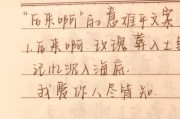 "后来啊"的意难平文案
1.后来啊,玫瑰葬入土里
记忆沉入海底.
我爱你人尽皆知.